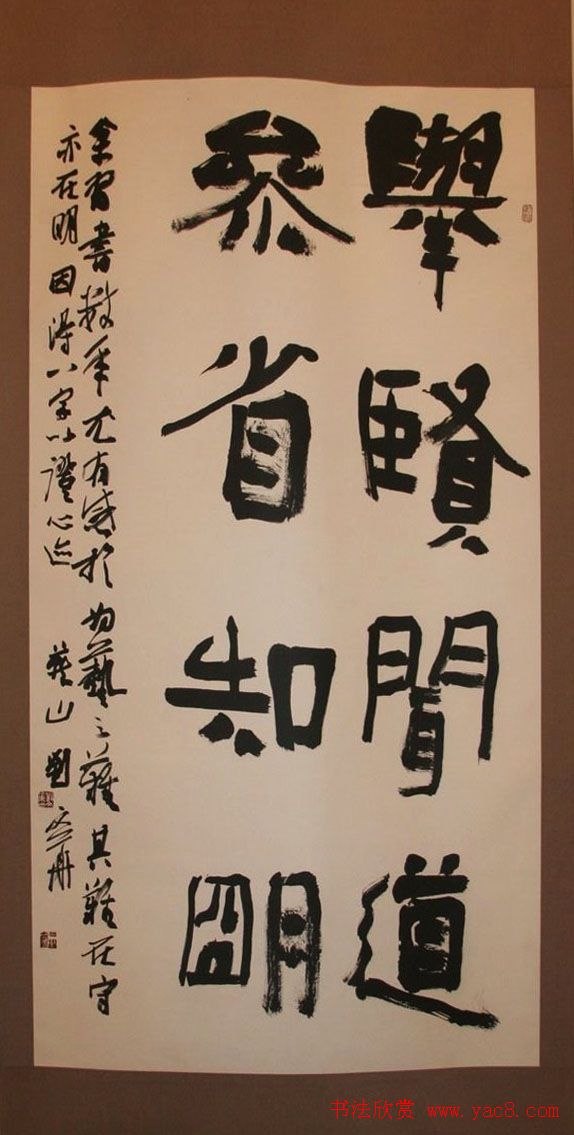 舉賢聞道
叅省知明
余習書數年尤有感於為藝之難其難在守
亦在明因得八字以證心迹
燕山劉文丹
书法欣赏 www.yac8.com